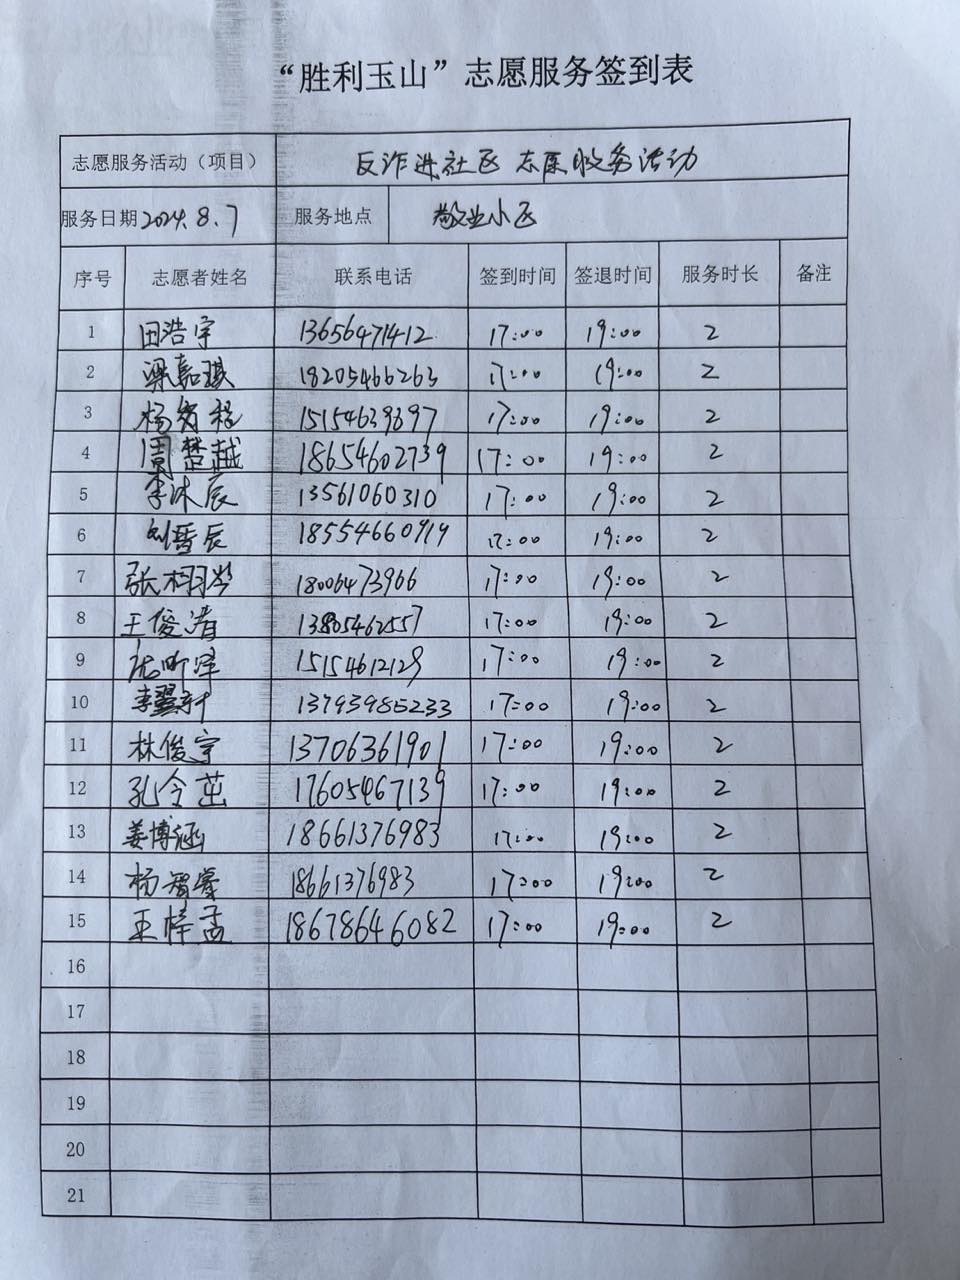 “胜利玉山”志愿服务签到表
志愿服务活动（项目） 反诈进社区志愿服务活动
服务日期 2024.8.7 服务地点 敬业小区
序号 志愿者姓名 联系电话 签到时间 签退时间 服务时长 备注
1 田浩宇 13656471412 17:00 19:00 2
2 梁嘉琪 18205466263 17:00 19:00 2
3 杨 15154639697 17:00 19:00 2
4 周楚越 18654602739 17:00 19:00 2
5 李沐辰 13561060310 17:00 19:00 2
6 刘晋辰 18554660919 17:00 19:00 2
7 张栩 18006473966 17:00 19:00 2
8 王俊清 17:00 19:00 2
9 15154612129 17:00 19:00 2
10 李翼轩 13793985233 17:00 19:00 2
11 林俊宇 13706361901 17:00 19:00 2
12 孔令茁 17605467139 17:00 19:00 2
13 姜博涵 18661376983 17:00 19:00 2
14 杨智睿 18661376983 17:00 19:00 2
15 王梓孟 18678646082 17:00 19:00 2
16
17
18
19
20
21